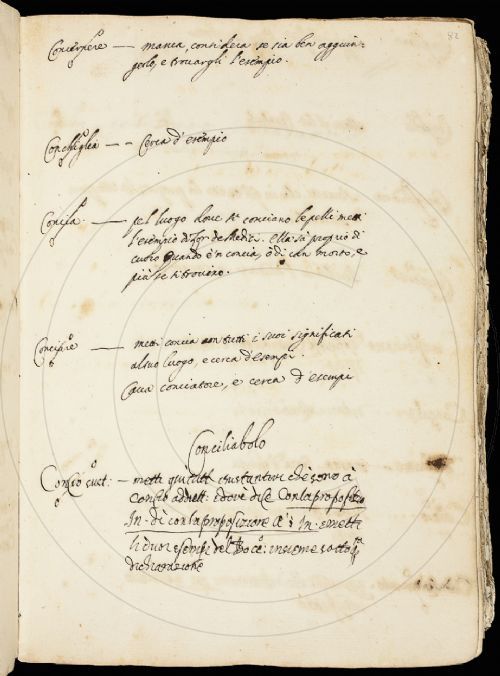 82
manca, considera se sia ben aggiun-
gerlo, e trovargli l'esempio.
Conchiglia — - Cerca d'esempio
Concia — pel luogo dove si conciano le pelli metti
l'esempio di Lor: de Medic: Ella sa proprio di
cuoio quando è 'n concia, ò di can morto, e
più se si trovino.
metti concia con tutti i suoi significati
al suo luogo, e cerca d'esempi.
Cava conciatore, e cerca d'esempi
Conciliabolo
sust: — metti qui tutti
dove dice Con la proposit.
In. di' con la proposizione A' è In. e metti
li duoi esempi del Bocc: insieme sotto
dichiarazione